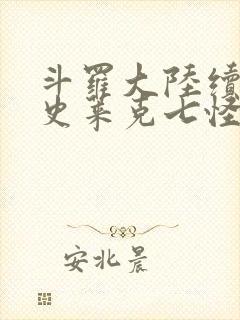 斗羅大陸續
史莱克七怪
安北晨